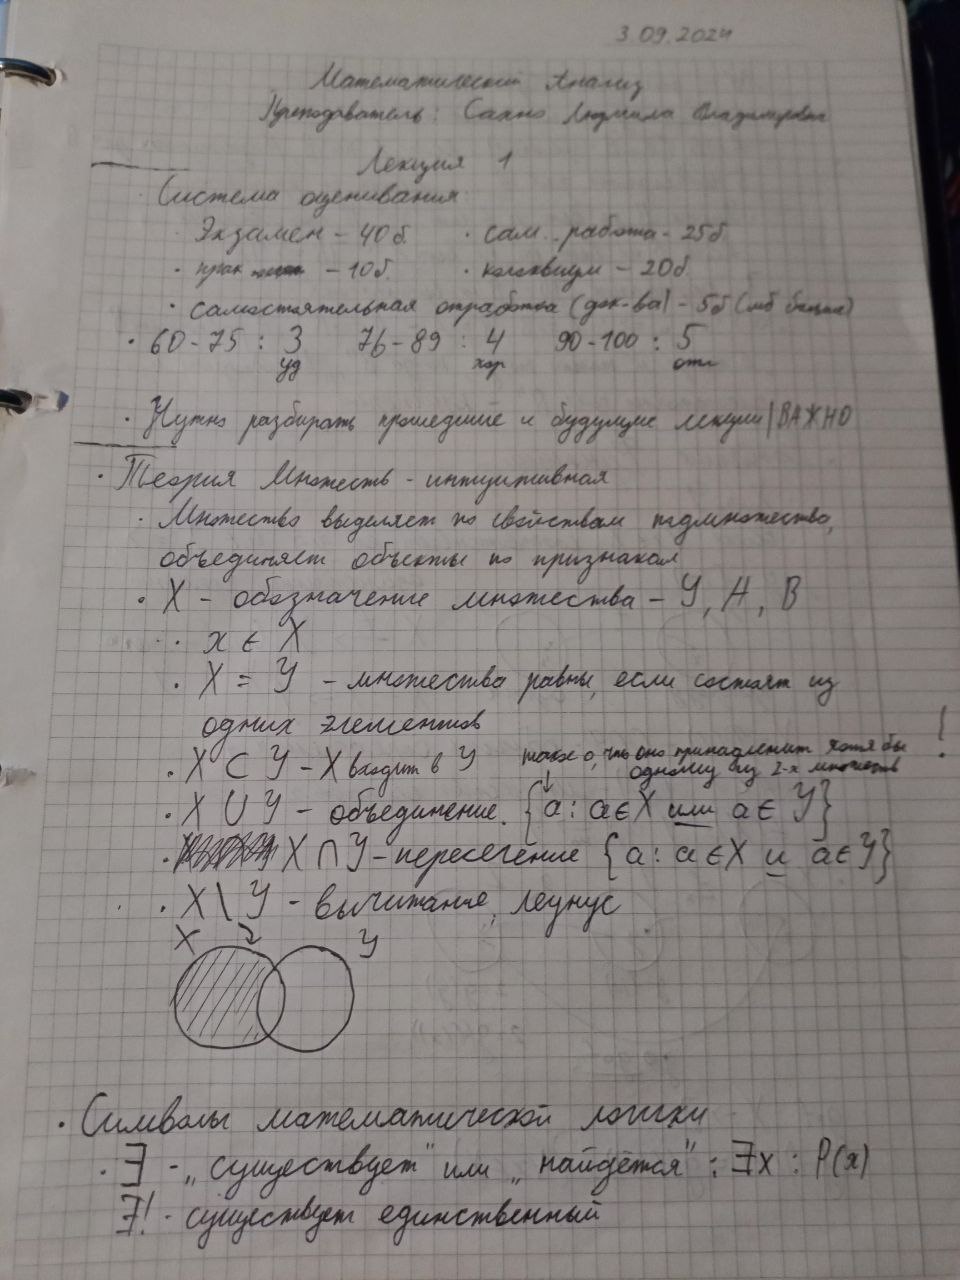 3.09.2024
Математический Анализ
Преподаватель: Сахно Людмила Владимировна
Лекция 1
Система оценивания
· Экзамен – 40б. · сам. работа – 25б
· прак – 10б. · коллквиум – 20б.
· самостоятельная отработка (док-ва) – 5б (мб больше)
· 60-75 : 3 76-89 : 4 90-100 : 5
уд хор отл
· Нужно разбирать прошедшие и будущие лекции | ВАЖНО
· Теория Множеств - интуитивная
· Множество выделяет по свойствам подмножество,
объединяет объекты по признакам
· X – обозначение множества – Y, A, B
· x ∈ X
· X = Y – множества равны, если состоят из
одних элементов
· X ⊂ Y – X входит в Y
такое a, что оно принадлежит хотя бы !
одному из 2-х множеств
↓
· X ∪ Y – объединение. {a : a ∈ X или a ∈ Y}
· X ∩ Y – пересечение {a : a ∈ X и a ∈ Y}
· X \ Y – вычитание,
X Y
· Символы математической логики
· ∃ - „существует" или „найдётся" : ∃x : P(x)
∃! - существует единственный